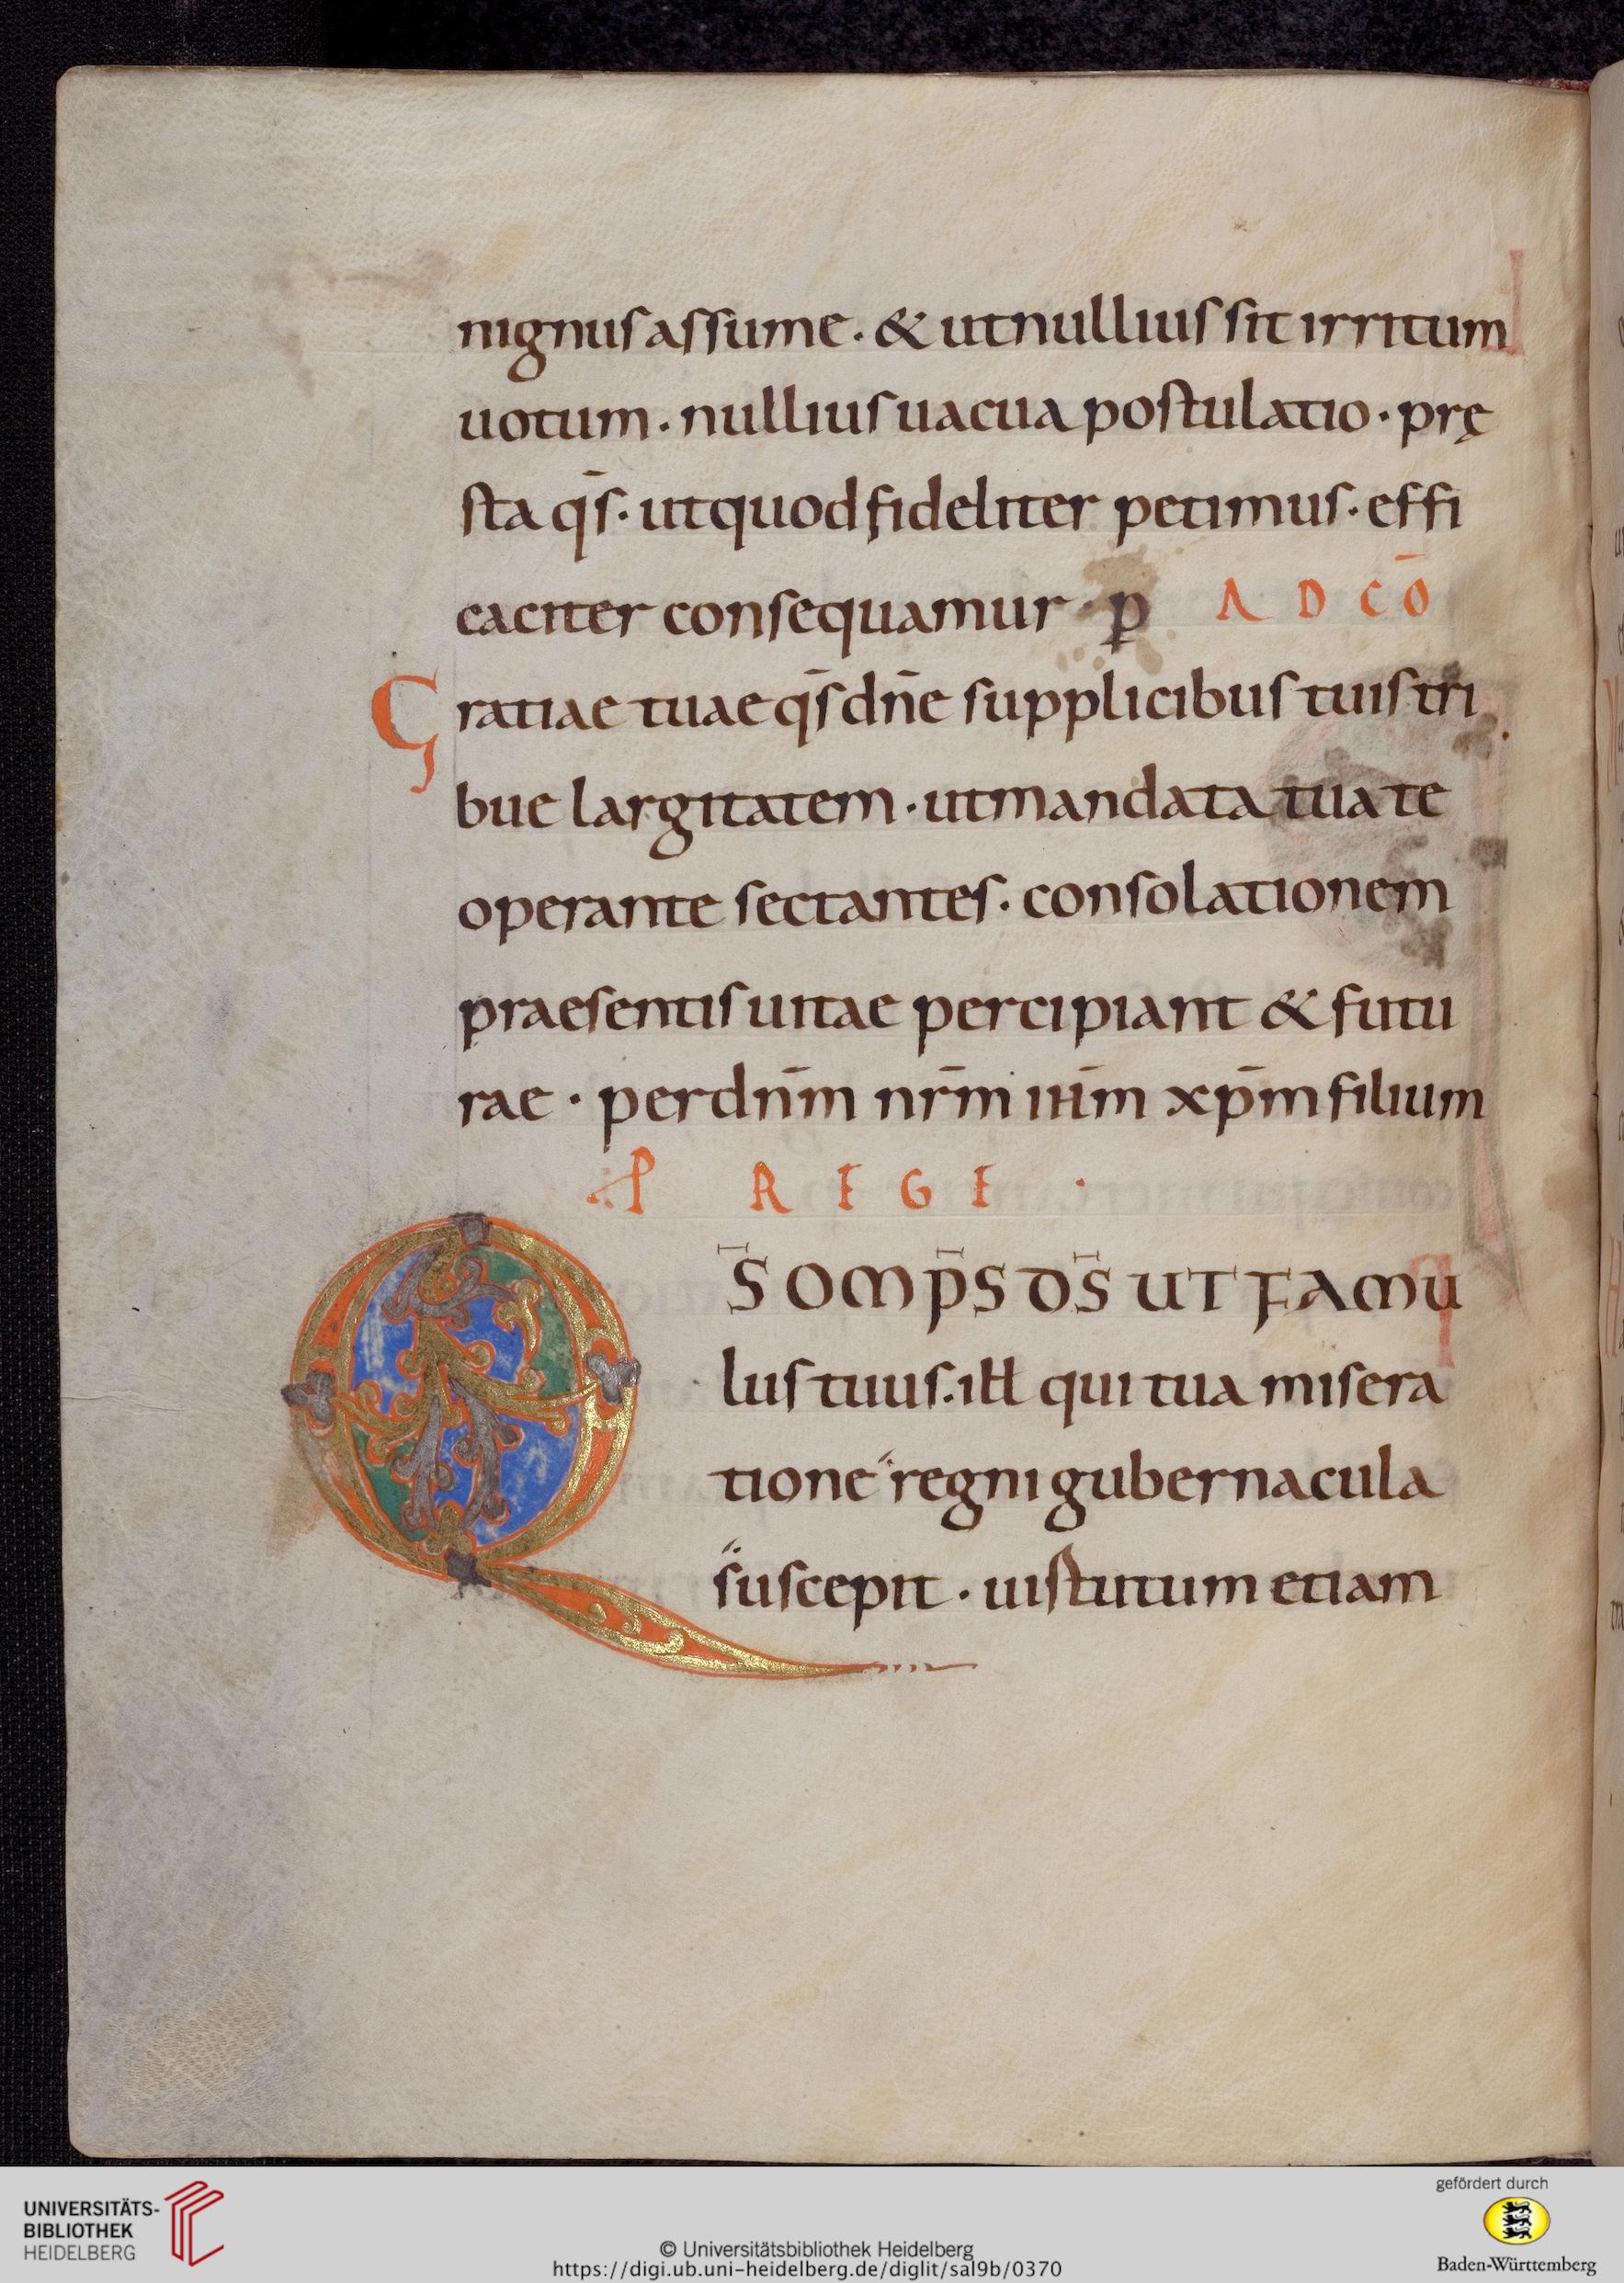 nignus assume · & ut nullius sit irritum
uotum · nullius uacua postulatio · prę
sta qs̄ · ut quod fideliter petimus · effi
caciter consequamur · p AD CŌ
Gratiae tuae qs̄ dn̄e supplicibus tuis tri
bue largitatem · ut mandata tua te
operante sectantes · consolationem
praesentis uitae percipiant & futu
rae · per dn̄m nr̄m ih̄m xp̄m filium
P REGE ·
QS̄ OMP̄S DS̄ UT FAMU
lus tuus · ill qui tua misera
tione regni gubernacula
suscepit · uistutum etiam
UNIVERSITÄTS-
BIBLIOTHEK
HEIDELBERG
© Universitätsbibliothek Heidelberg
https://digi.ub.uni-heidelberg.de/diglit/sal9b/0370
gefördert durch
Baden-Württemberg